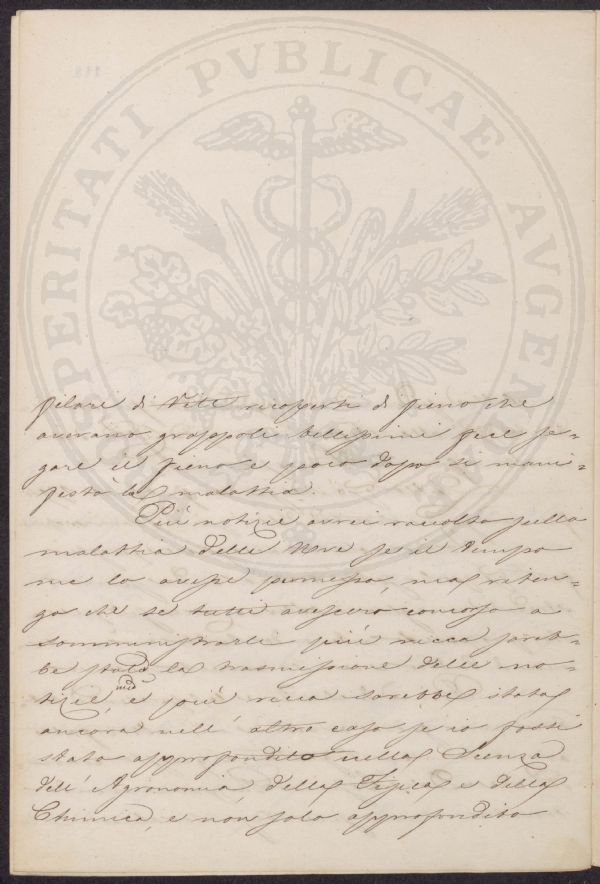 PROSPERITATI PVBLICAE AVGENDAE
filari di Viti ricoperti di fieno che
avevano grappoli bellissimi fece se-
gare il fieno e poco dopo si mani-
festò la malattia.
Più notizie avrei raccolto sulla
malattia delle Uve se il tempo
me lo avesse permesso, ma riten-
go che se tutti avessero concorso a
somministrarle più ricca sareb-
be stata la trasmissione delle no-
tizie, e più ricca sarebbe stata
ancora nell' altro caso se io fossi
stato approfondito nella Scienza
dell' Agronomia della Fisica e della
Chimica, e non solo approfondito